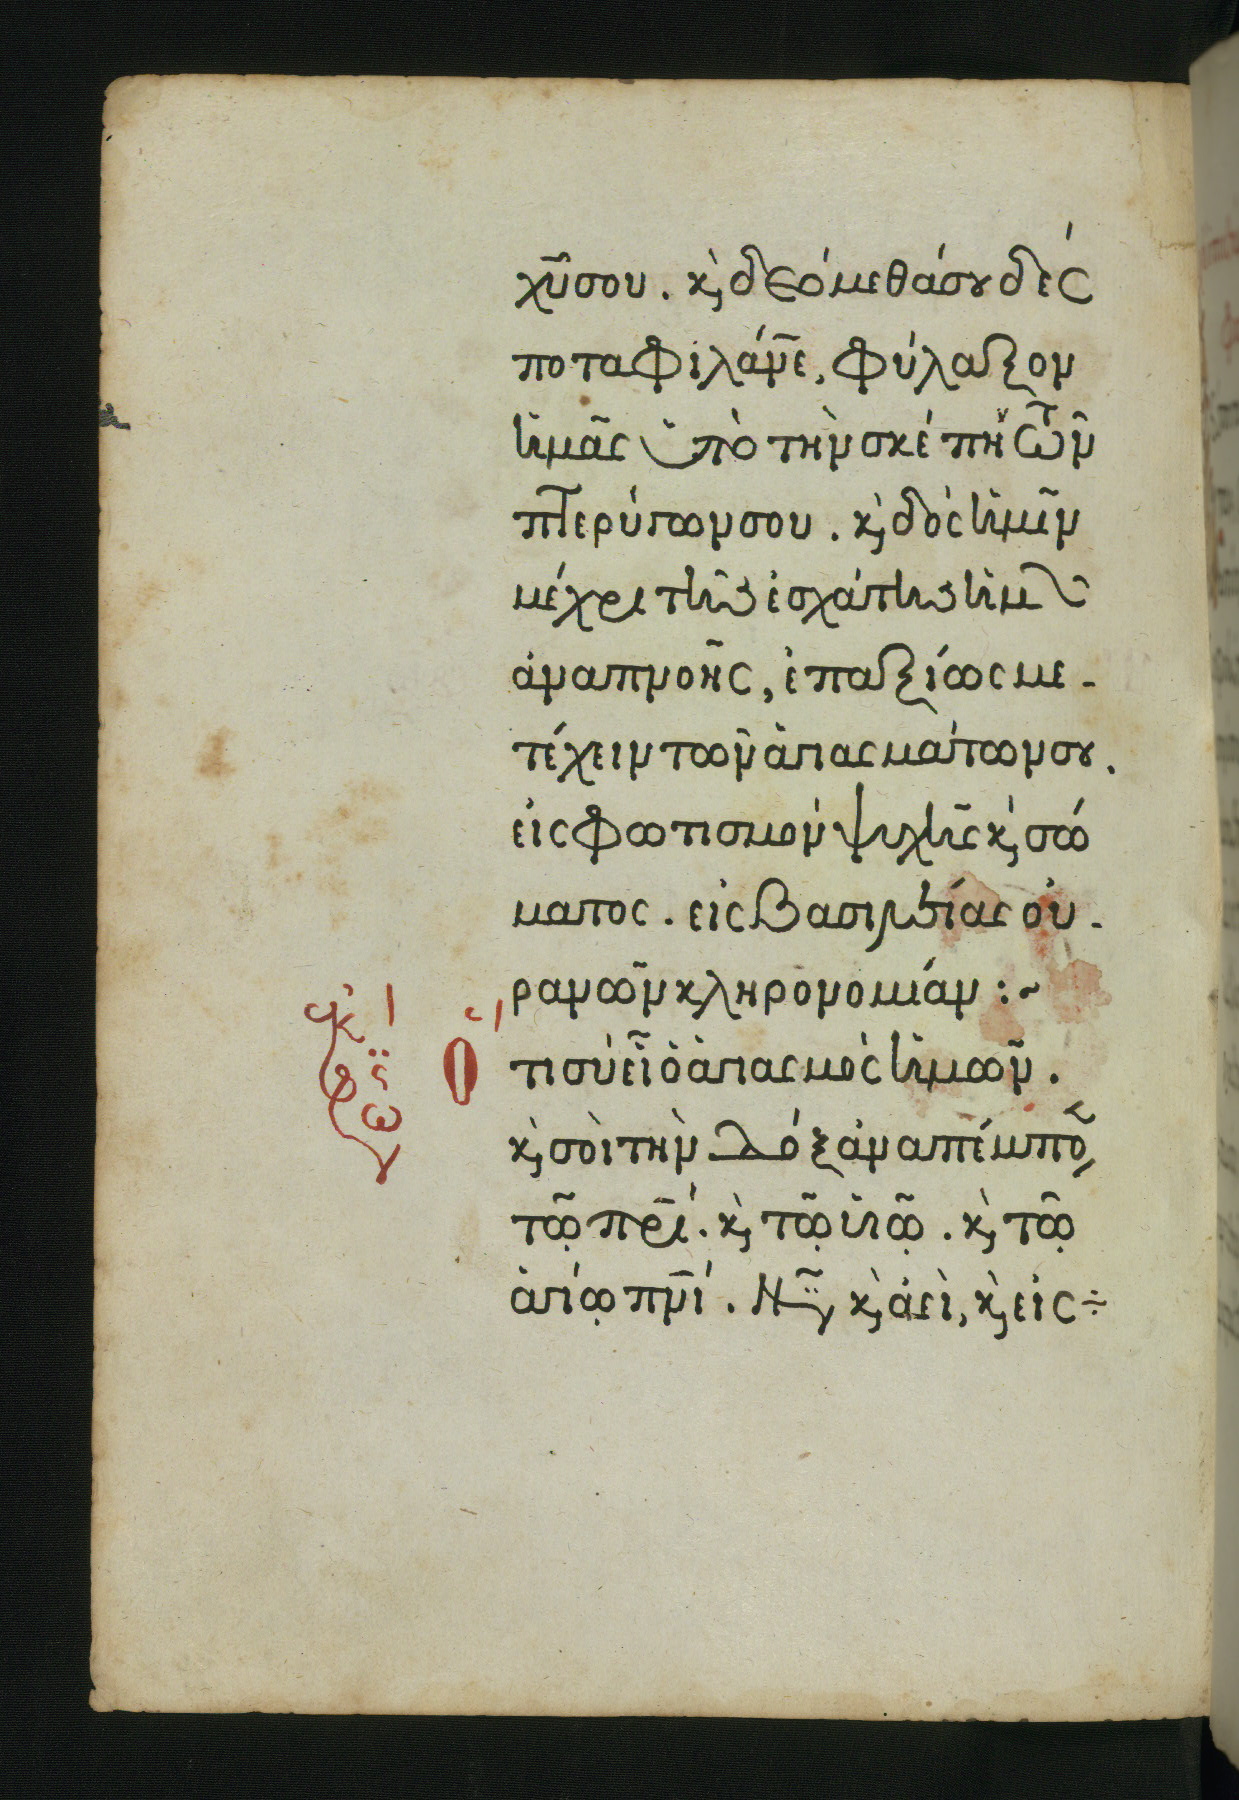 χῦσου. κ̀ δεόμεθάσου δές
ποτα φιλάν̅ε, φύλαξον
ἡμᾶς ὑπὸ τὴν σκέπη τῶν
πτερύγων σου. κ̀ δὸς ἡμῖν
μέχρι τῆς ἐσχάτης ἡμῶν
ἀναπνοῆς, ἐπαξίως με-
τέχειν τῶν ἁγιασμάτων σου.
εἰς φωτισμὸν ψυχῆς κ̀ σώ
ματος. εἰς βασιλείας οὐ-
ρανῶν κληρονομίαν :~
Ὅτι σὺ εἶ ὁ ἁγιασμὸς ἡμῶν.
κ̀ σοὶ τὴν δόξαν ἀναπέμπο
τῷ πρ̅ι. κ̀ τῷ υἱῷ. κ̀ τῷ
ἁγίῳ πν̅ι. νῦν κ̀ ἀεὶ, κ̀ εἰς